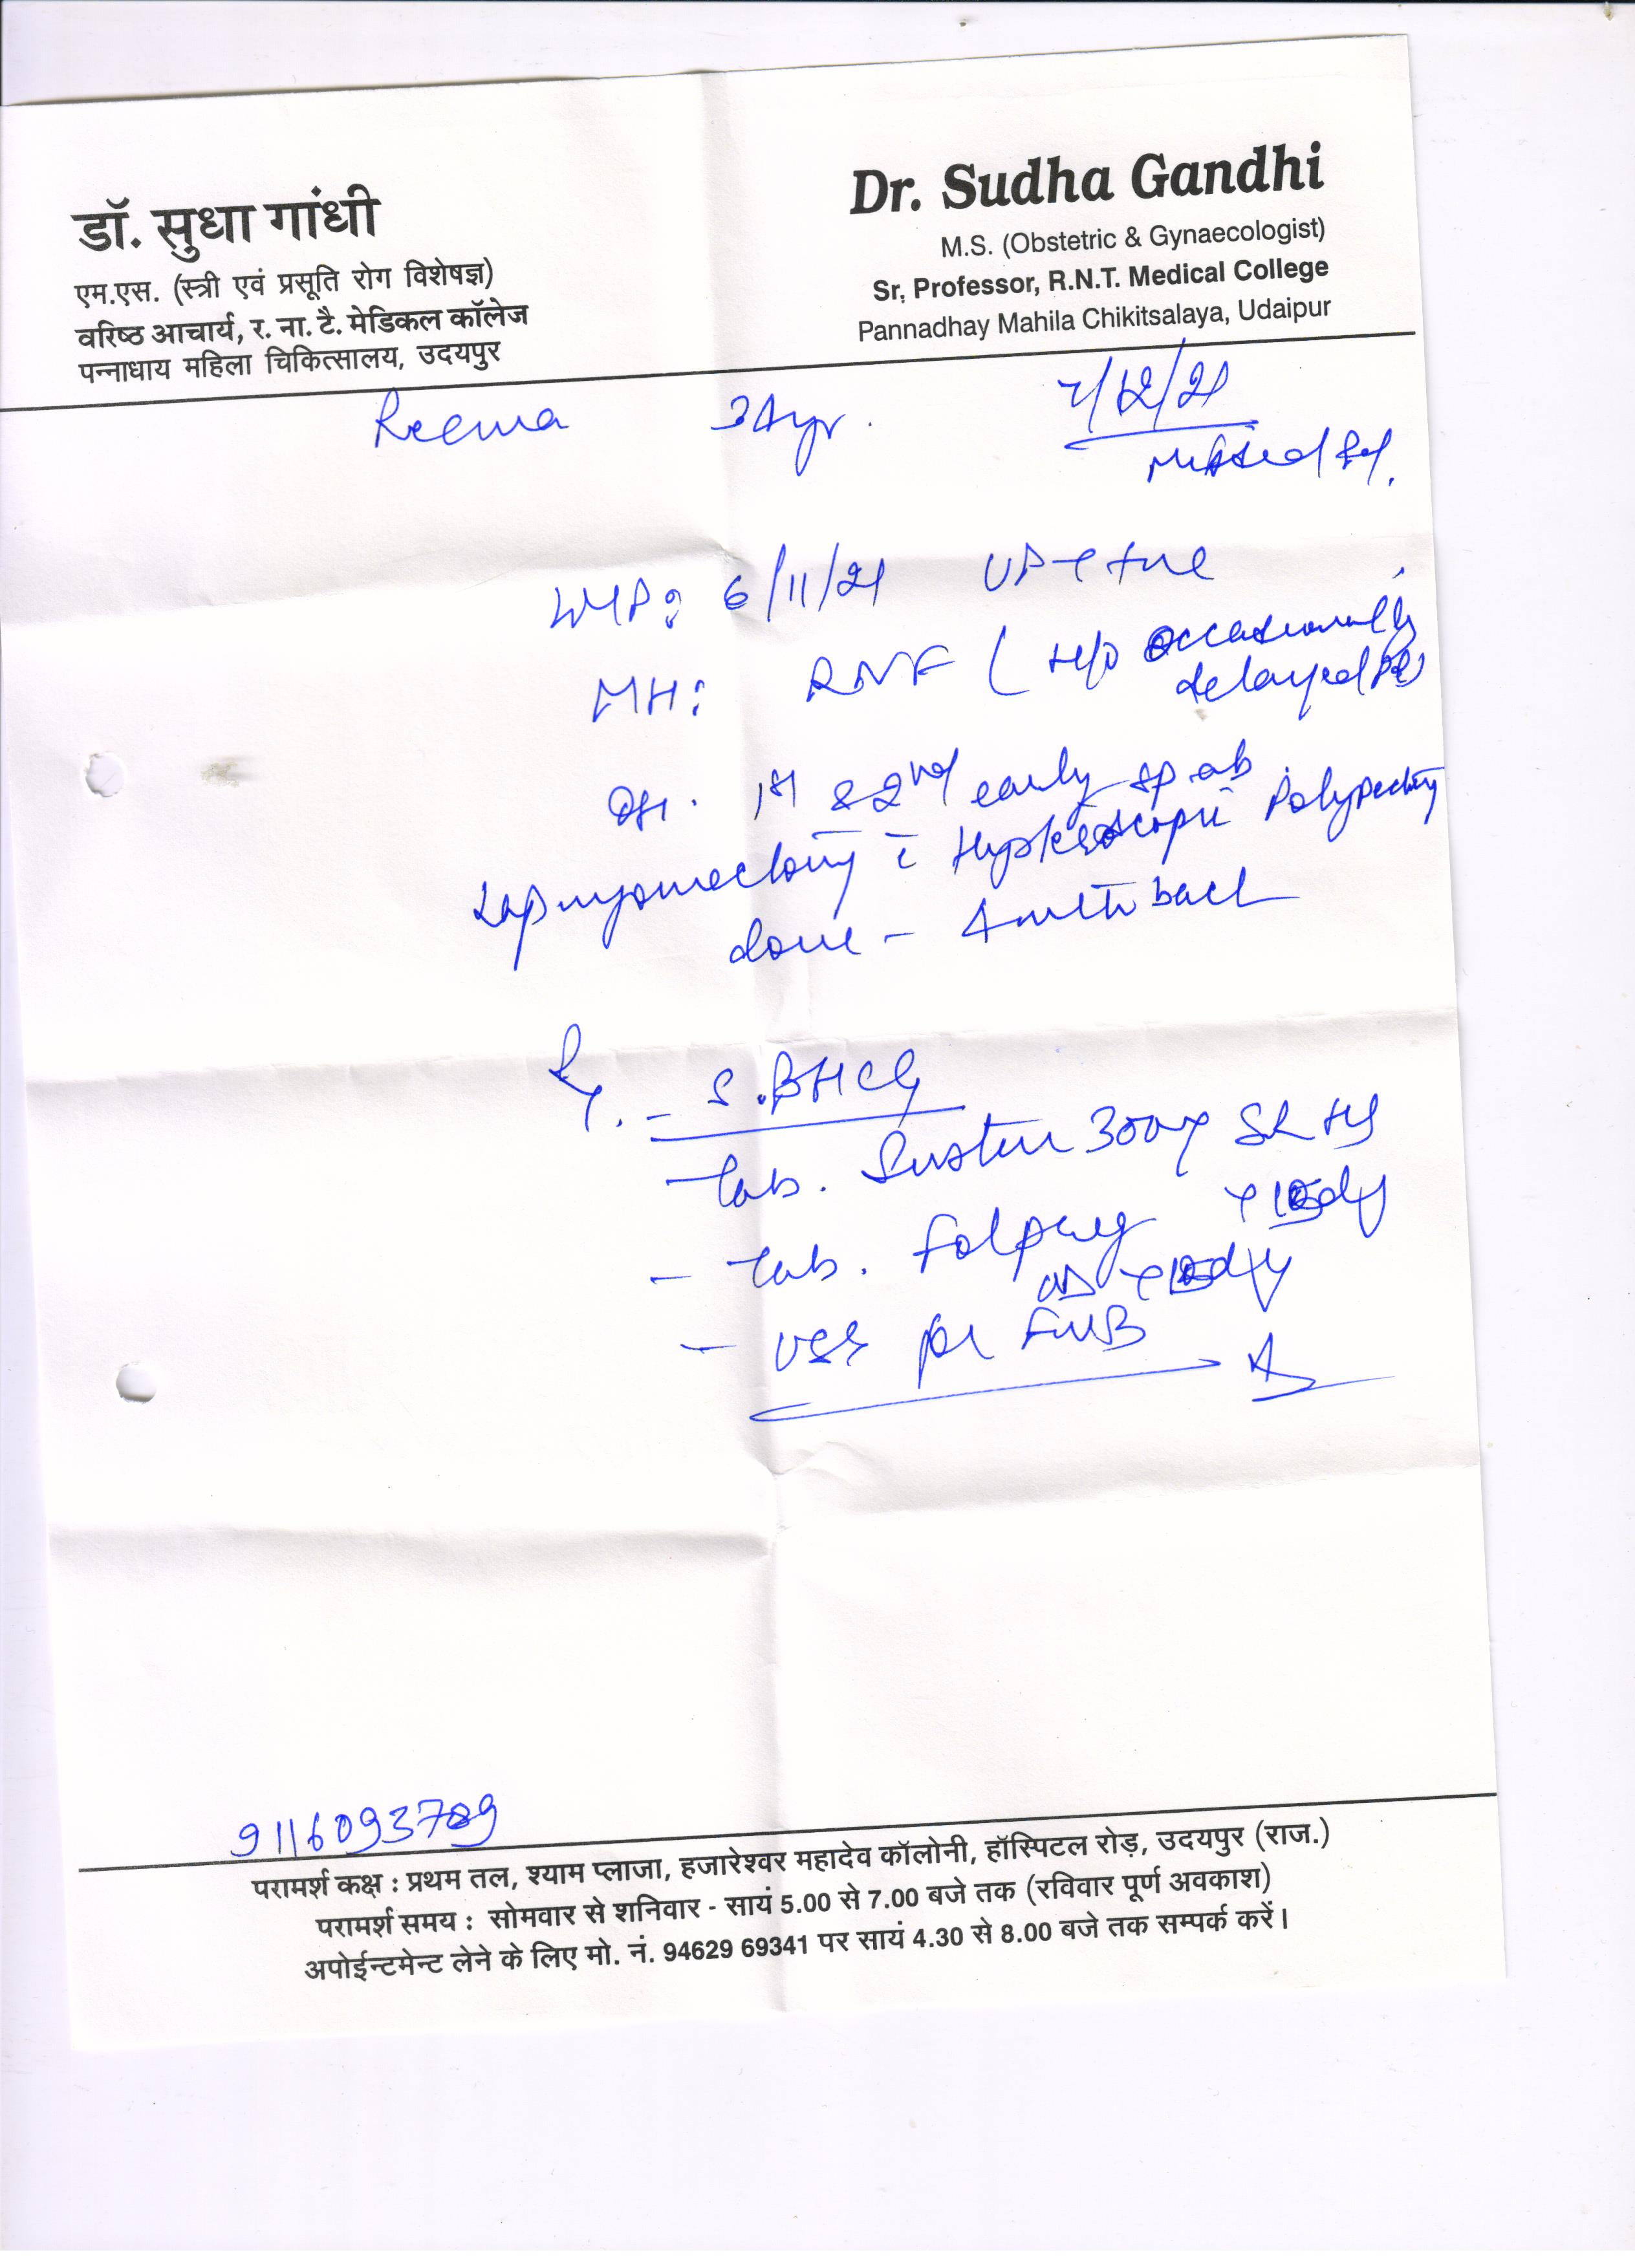 डॉ. सुधा गांधी
एम.एस. (स्त्री एवं प्रसूति रोग विशेषज्ञ)
वरिष्ठ आचार्य, र. ना. टै. मेडिकल कॉलेज
पन्नाधाय महिला चिकित्सालय, उदयपुर
Dr. Sudha Gandhi
M.S. (Obstetric & Gynaecologist)
Sr. Professor, R.N.T. Medical College
Pannadhay Mahila Chikitsalaya, Udaipur
Reema 34yr. 7/12/21
missed
LMP: 6/11/21 UPT +ve
MH: RNF ( H/o occasionally
delayed
1st & 2nd early sp ab
Lap myomectomy c̄ Hysteroscopic Polypectomy
done - 4 mth back
Rx. - S.BHCG
- Tab. Susten 300 SR HS
- Tab. Folpreg
OD
- USG for FWB
9116093789
परामर्श कक्ष : प्रथम तल, श्याम प्लाजा, हजारेश्वर महादेव कॉलोनी, हॉस्पिटल रोड़, उदयपुर (राज.)
परामर्श समय : सोमवार से शनिवार - सायं 5.00 से 7.00 बजे तक (रविवार पूर्ण अवकाश)
अपोईन्टमेन्ट लेने के लिए मो. नं. 94629 69341 पर सायं 4.30 से 8.00 बजे तक सम्पर्क करें।